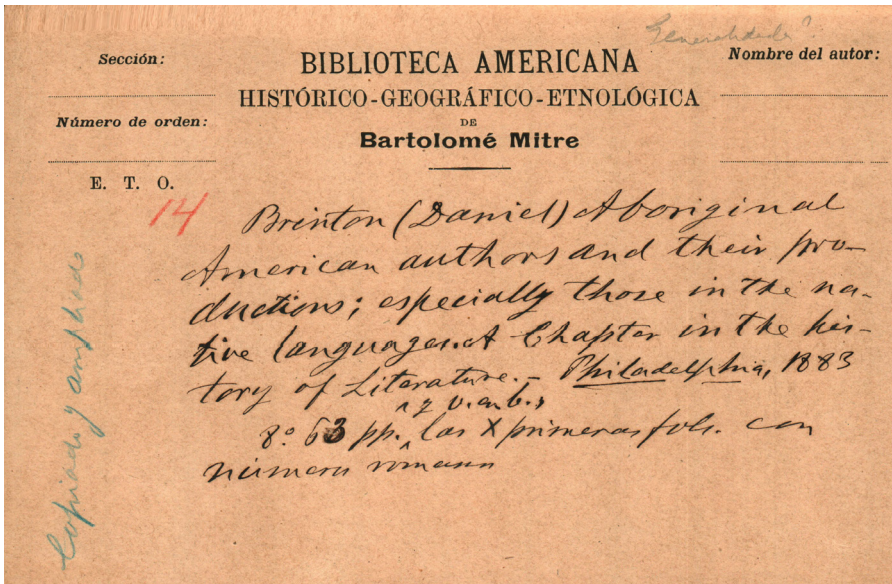 Generalidades
Sección:
BIBLIOTECA AMERICANA
Nombre del autor:
HISTÓRICO-GEOGRÁFICO-ETNOLÓGICA
Número de orden:
DE
Bartolomé Mitre
E. T. O.
14
Brinton (Daniel) Aboriginal
American authors and their pro-
ductions; especially those in the na-
tive languages. A Chapter in the his-
tory of Literature.- Philadelphia, 1883
8.º 63 pp. las X primeras fols. con
número romano
Copiado y ampliado